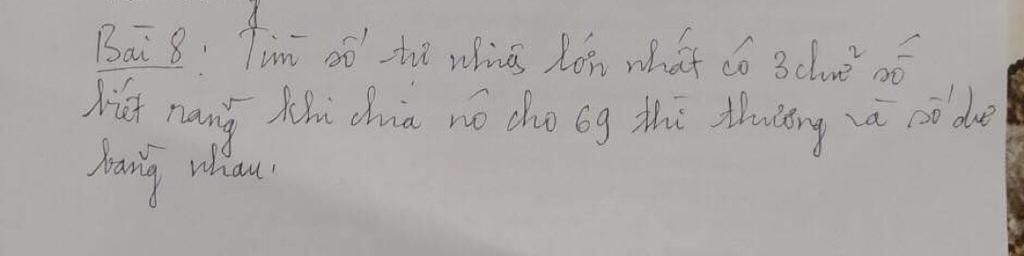 Bài 8: Tìm số tự nhiên lớn nhất có 3 chữ số
biết rằng khi chia nó cho 69 thì thương và số dư
bằng nhau.